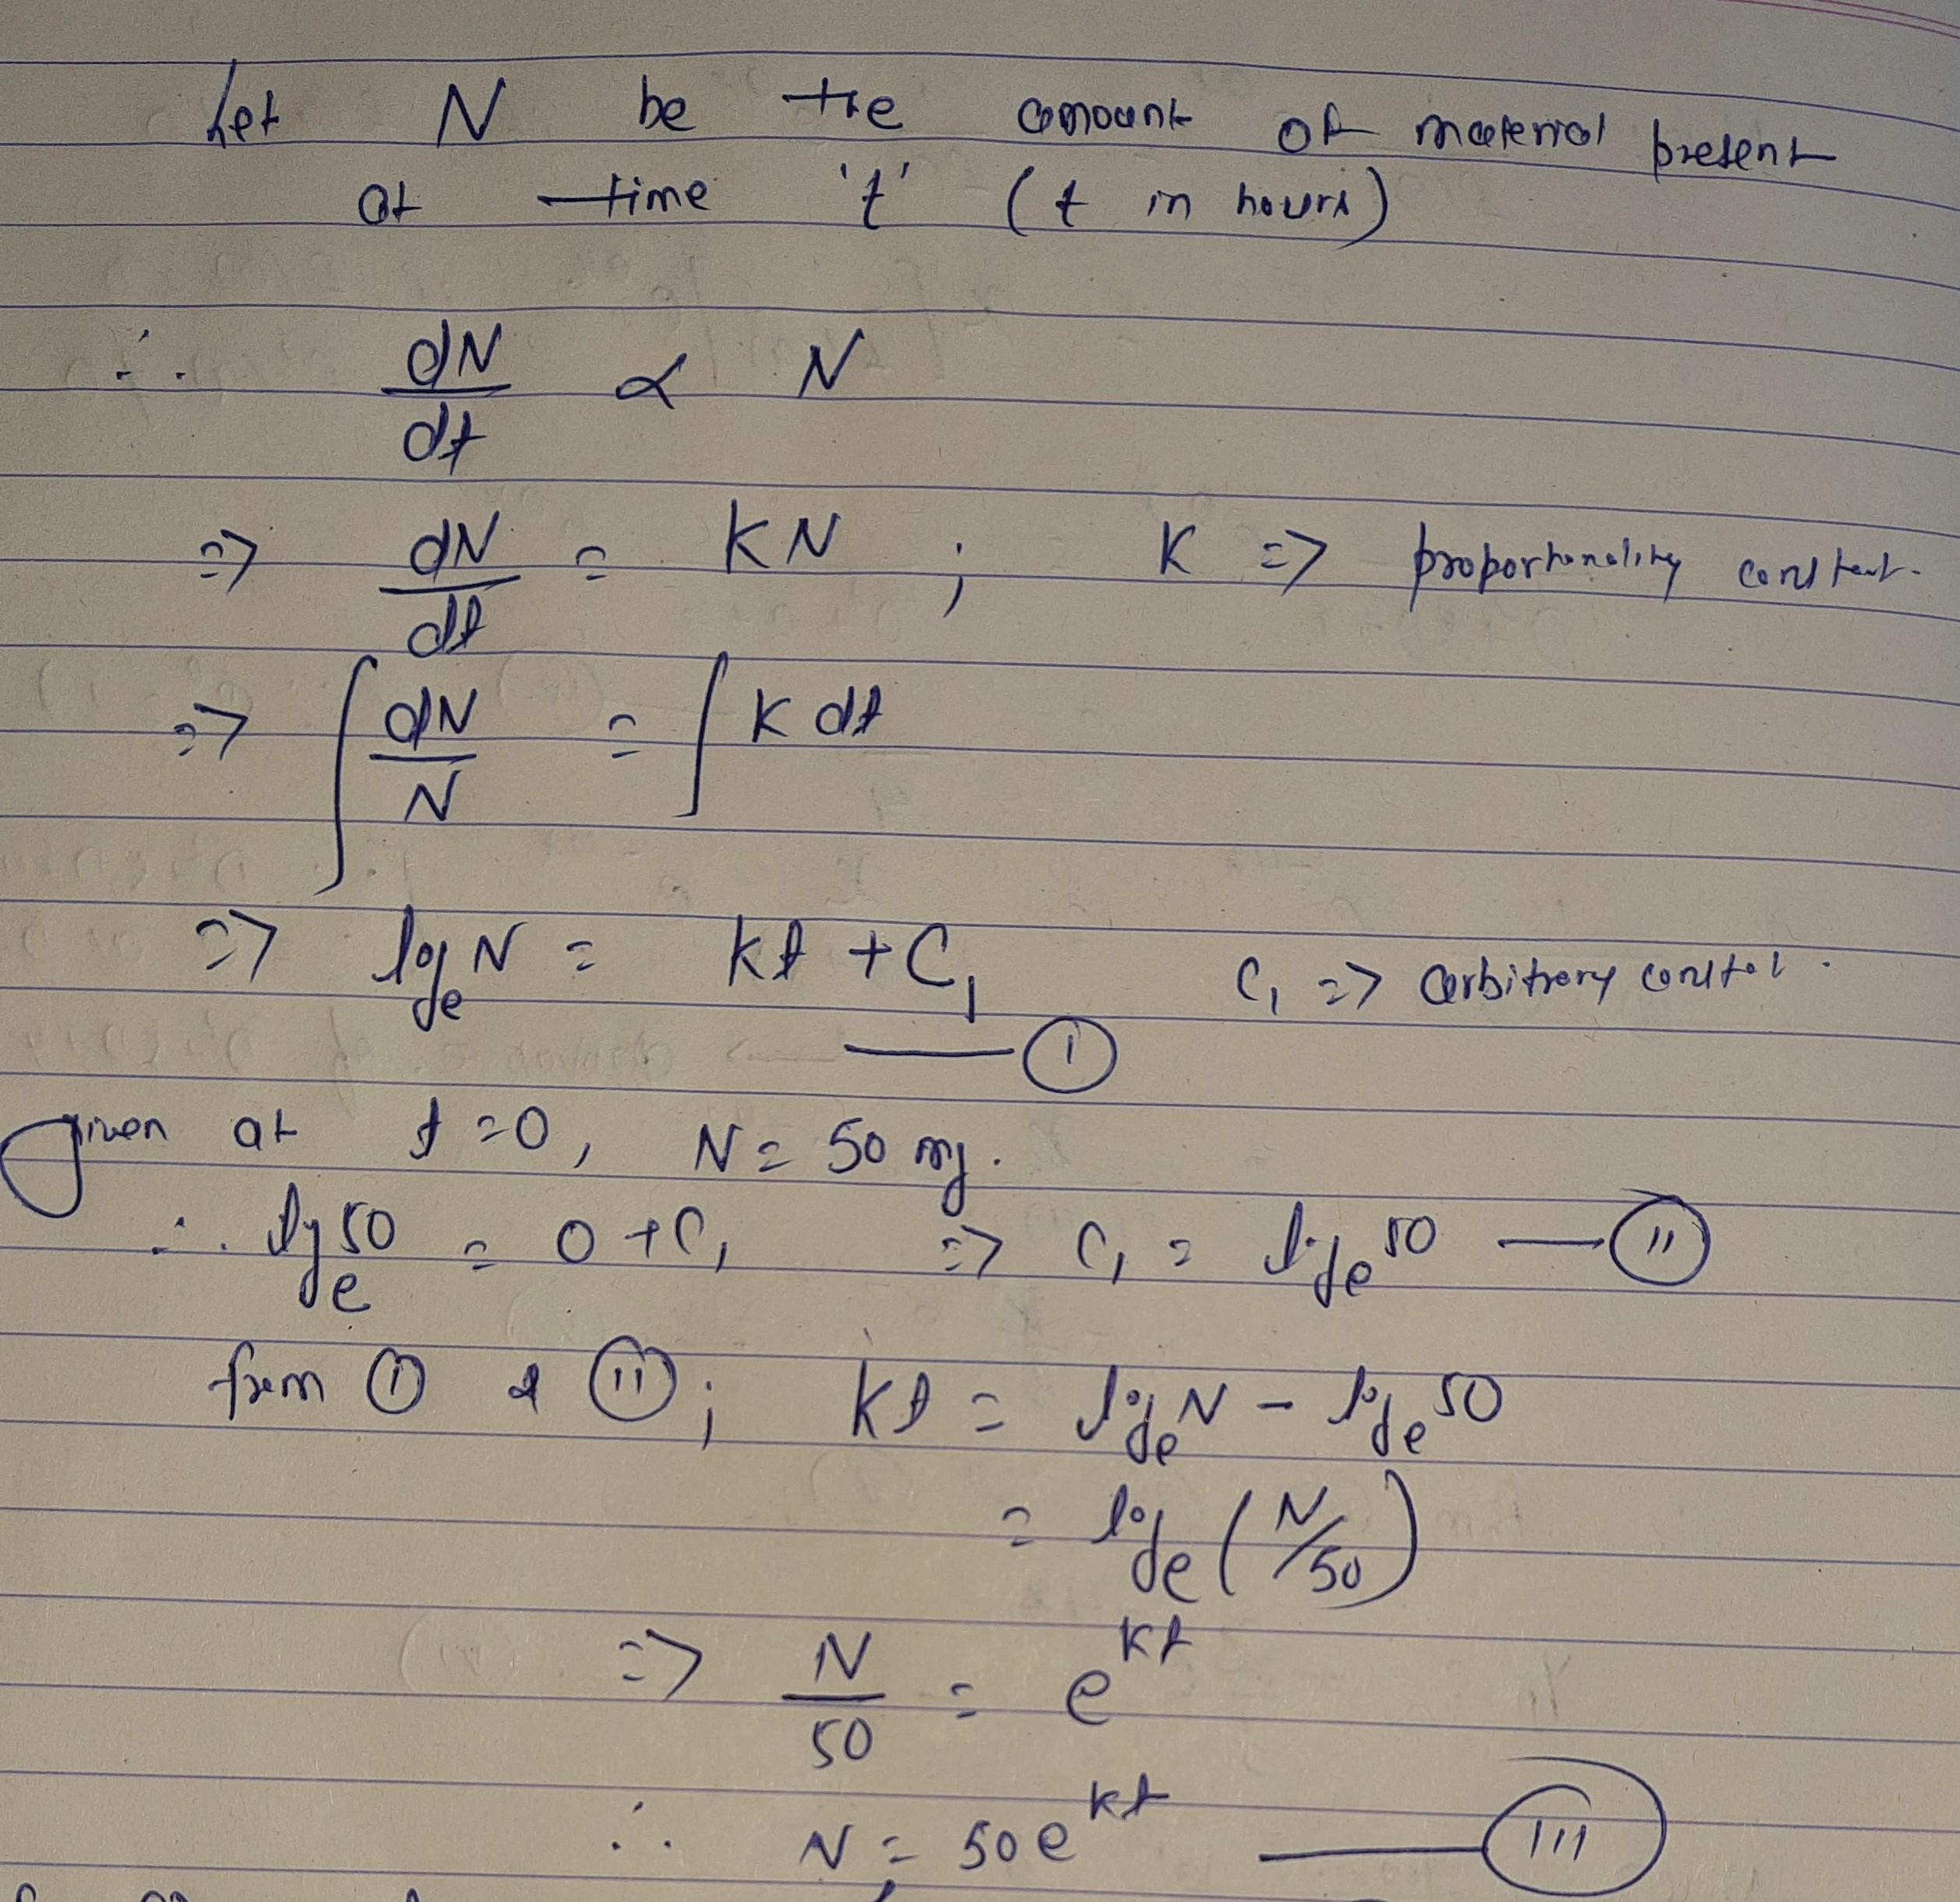 Let N be the amount of material present
at time 't' (t in hours)
∴ dN/dt ∝ N
=> dN/dt = KN ; K => proportionality constant.
=> ∫ dN/N = ∫ K dt
=> logₑ N = kt + C₁ C₁ => arbitrary constat.
——— (I)
given at t = 0, N = 50 mg.
∴ logₑ 50 = 0 + C₁ => C₁ = logₑ 50 — (II)
from (I) & (II); kt = logₑ N - logₑ 50
= logₑ (N/50)
=> N/50 = e^(kt)
∴ N = 50 e^(kt) ——— (III)